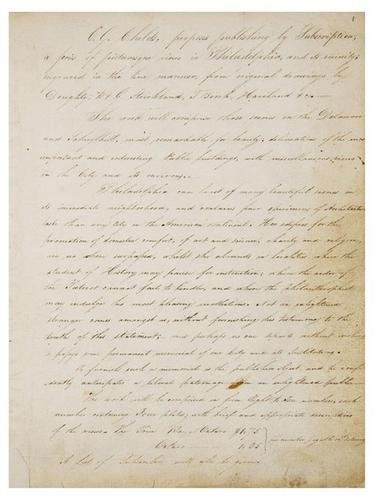 C. G. Childs, proposes publishing by Subscription,
a series of picturesque views in Philadelphia, and its vicinity
engraved in the line manner, from original drawings by
Doughty, W & G Strickland, T Birch, Haviland &c —
The work will comprise those scenes on the Delaware
and Schuylkill, most remarkable for beauty, delineation of the most
important and interesting Public buildings, with miscellaneous views
in the City and its environs.
Philadelphia can boast of many beautiful scenes in
its immediate neighborhood, and contains finer specimens of Architecture
than any City on the American continent. Her edifices for the
promotion of domestic comfort, of art and science, charity and religion,
are no where surpassed, whilst she abounds in localities where the
student of History may pause for instruction; where the ardor of
the Patriot cannot fail to kindle, and where the philanthropist
may indulge his most pleasing meditations. Not an enlightened
stranger comes amongst us, without furnishing his testimony to the
truth of this statement; and perhaps no one departs without wishing
to possess some permanent memorial of our City and its Institutions.
To furnish such a memorial is the publishers object, and he confi-
dently anticipates a liberal patronage from an enlightened public.
The work will be comprised in from Eight to Ten numbers, each
number containing Four plates, with brief and appropriate descriptions
of the views — The Price
A List of Subscribers, will also be given